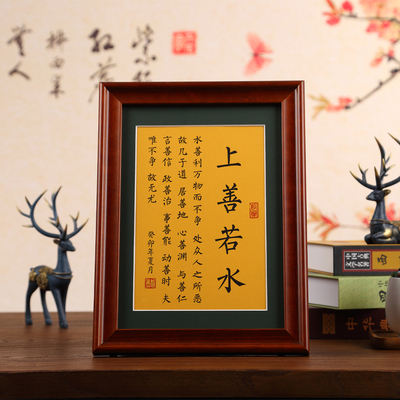 上善若水
水善利万物而不争 处众人之所恶
故几于道 居善地 心善渊 与善仁
言善信 政善治 事善能 动善时 夫
唯不争 故无尤
癸卯年夏月
中国古典
文学名著